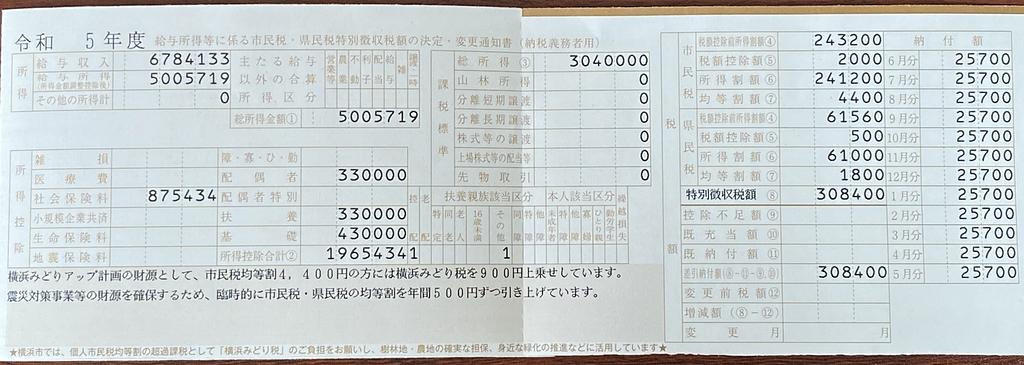 令和 5年度 給与所得等に係る市民税・県民税特別徴収税額の決定・変更通知書(納税義務者用)
所得
給与収入 6784133
給与所得(所得金額調整控除後) 5005719
その他の所得計 0
主たる給与以外の合算所得区分
総所得金額① 5005719
所得控除
雑損
医療費
社会保険料 875434
小規模企業共済
生命保険料
地震保険料
障・寡・ひ・勤
配偶者 330000
配偶者特別
扶養 330000
基礎 430000
所得控除合計② 1965434
課税標準
総所得③ 3040000
山林所得 0
分離短期譲渡 0
分離長期譲渡 0
株式等の譲渡 0
上場株式等の配当等 0
先物取引 0
扶養親族該当区分 本人該当区分 繰越損失
控配 老配 特定 同老 老人 16歳未満 その他 同障 特障 他障 未成年者 特障 他障 寡婦 ひとり親 勤労学生
1 1
税額
市民税
税額控除前所得割額④ 243200
税額控除額⑤ 2000
所得割額⑥ 241200
均等割額⑦ 4400
県民税
税額控除前所得割額④ 61560
税額控除額⑤ 500
所得割額⑥ 61000
均等割額⑦ 1800
特別徴収税額⑧ 308400
控除不足額⑨
既充当額⑩
既納付額⑪
差引納付額(⑧-⑪-⑨,⑩) 308400
変更前税額⑫
増減額(⑧-⑫)
変更月 月
納付額
6月分 25700
7月分 25700
8月分 25700
9月分 25700
10月分 25700
11月分 25700
12月分 25700
1月分 25700
2月分 25700
3月分 25700
4月分 25700
5月分 25700
横浜みどりアップ計画の財源として、市民税均等割4,400円の方には横浜みどり税を900円上乗せしています。
震災対策事業等の財源を確保するため、臨時的に市民税・県民税の均等割を年間500円ずつ引き上げています。
★横浜市では、個人市民税均等割の超過課税として「横浜みどり税」のご負担をお願いし、樹林地・農地の確実な担保、身近な緑化の推進などに活用しています★